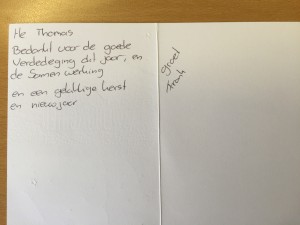 He Thomas
Bedankt voor de goede
Verdediging dit jaar, en
de Samenwerking
en een gelukkige kerst
en nieuwjaar
groet
Frank